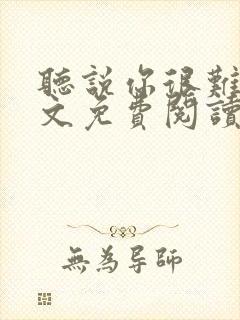 聽說你很難
文免費閱讀
無為导師